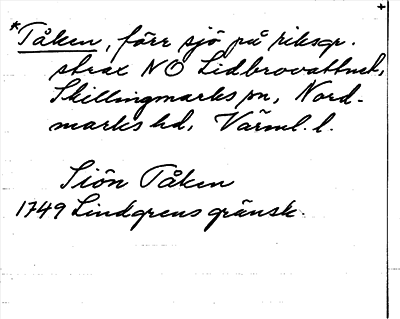 *Tåken, förr sjö på riksgr.
strax NO Lidbrovattnet,
Skillingmarks sn, Nord-
marks hd, Värml. l.
Siön Tåken
1749 Lindgrens gränsk.